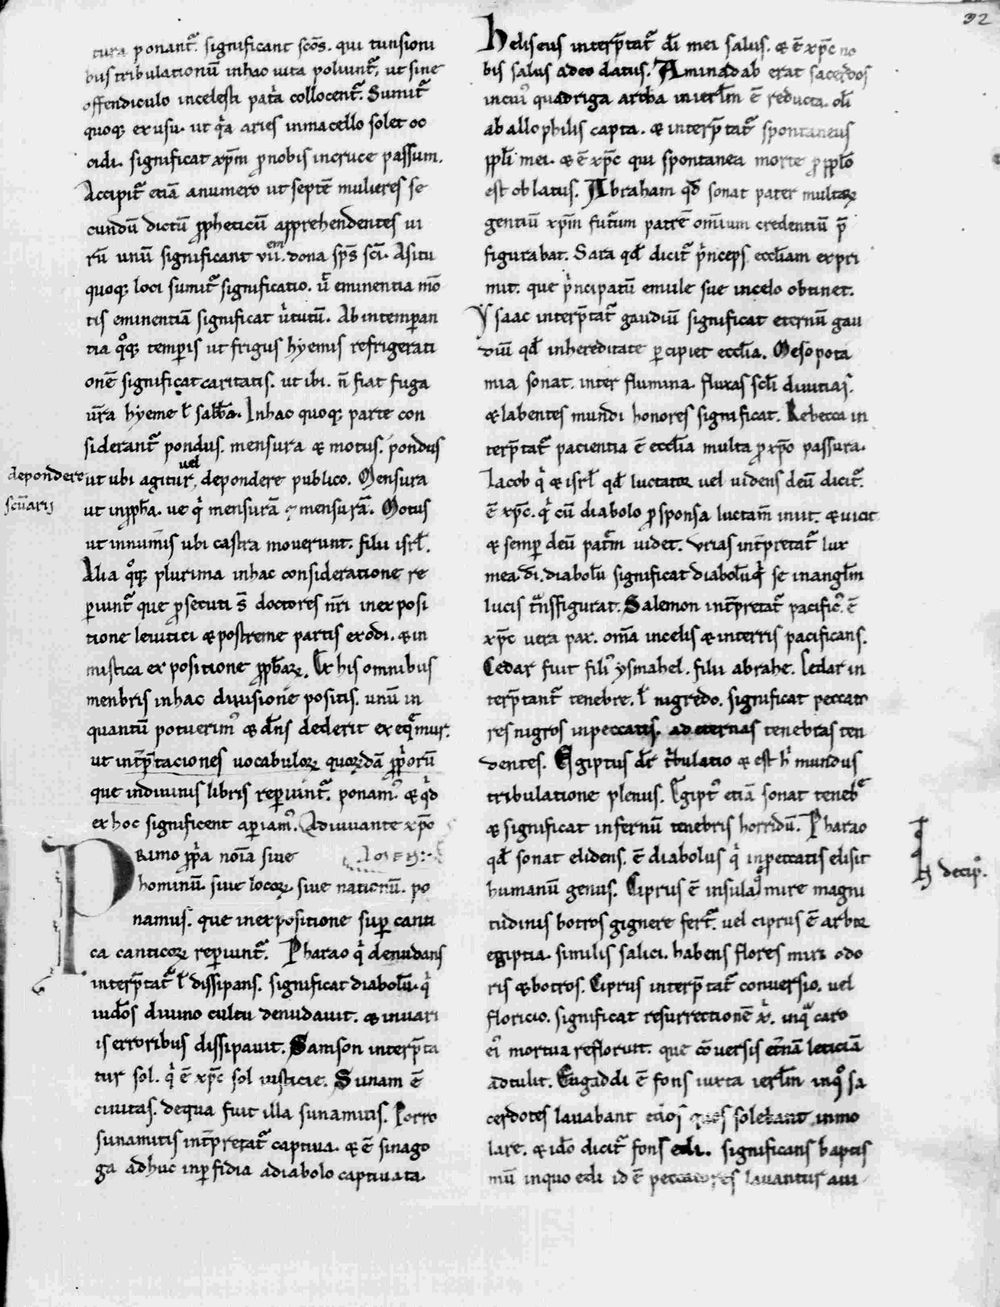 32
tura ponant᷑. significant sc̄os. qui tunsioni
bus tribulationū inhac uita poliunt᷑, ut sine
offendiculo incelesti pat̄a collocent᷑. Sumit᷑
quoq; ex usu. ut q̄a aries inmacello solet oc
cidi. significat xp̄m p̄nobis incruce passum.
Accipit᷑ etiā anumero ut septē mulieres se
cundū dictū ꝓpheticū apprehendentes ui
rū unū significant vii.em dona sp̄s sc̄i. Asitu
quoq; loci sumit᷑ significatio. ut̄ eminentia mō
tis eminentiā significat uꝉtutū. Ab intemperan
tia q̊q; temp̄is ut frigus hyemis refrigerati
onē significat caritatis. ut ibi. n̄ fiat fuga
ur̄a hyeme ł sabb̄a. Inhac quoq; parte con
siderant᷑ pondus. mensura & motus. pondus
depondere
scuarii
ut ubi agitur uel depondere publico. Mensura
ut inꝓph̄a. ue q̇ mensurā & mensurā. Motus
ut innum̄is ubi castra mouerunt. filii isrł.
Alia q̊q; plurima inhac consideratione re
p̄iunt᷑ que p̄secuti s̄ doctores nr̄i inexposi
tione leuitici & postreme partis exodi. & in
mistica expositione ꝓph̄aꝝ. Ex his omnibus
menbris inhac diuisione positis. unū in
quantū potuerim᷒ & dn̄s dederit exeq̄mur.
ut int̄p̄taciones uocabuloꝝ quoꝝdā ꝓp̄orū
que indiuinis libris rep̄iunt᷑. ponam᷒. & q̇d
ex hoc significent ap̄iam᷒. Adiuuante xp̄o
Primo ꝓp̄a nōia siue
hominū. siue locoꝝ. siue nationū. po
namus. que inexpositione sup̄ canti
ca canticoꝝ rep̄iunt᷑. Pharao q̇ denudans
interp̄tat᷑ ł dissipans. significat diabolū. q̇
iudēos diuino cultu denudauit. & inuari
is erroribus dissipauit. Samson interp̄ta
tur sol. q̇ ē xp̄c sol iusticie. Sunam ē
ciuitas. dequa fuit illa sunamitis. Porro
sunamitis int̄p̄retat᷑ captiua. & ē sinago
ga adhuc inp̄fidia adiabolo captiuata.
Heliseus interp̄tat᷑ dī mei salus. & ē xp̄c no
bis salus adeo datus. Aminadab erat sacerdos
incui᷒ quadriga archa inierłm ē reducta. oł̄
ab allophilis capta. & interp̄tat᷑ spontaneus
pp̄łi mei. & ē xp̄c qui spontanea morte ꝓ pp̄ło
est oblatus. Abraham qd̄ sonat pater multaꝝ
gentiū xp̄m futūm patrē om̄ium credentiū p̄
figurabat. Sara qd̄ dicit᷑ p̄nceps ecclīam expri
mit. que p̄ncipatū emule sue incelo obtinet.
Ysaac interp̄tat᷑ gaudiū significat eternū gau
diū qd̄ inhereditate p̄cipiet eccl̄ia. Mesopota
mia sonat. inter flumina. fluxas sc̄li diuitias.
& labentes mundi honores significat. Rebecca in
terp̄tat᷑ pacientia ē eccl̄ia multa ꝓ xp̄o passura.
Iacob q̇ & isrł qd̄ luctator uel uidens deū dicit᷑.
ē xp̄c. q̇ cū diabolo ꝓ sponsa luctam̄ iniit. & uicit
& semp̄ deū patr̄m uidet. Vrias int̄pretat᷑ lux
mea dī. diabolū significat diabolūq̇ se inangłm
lucis t̄nsfigurat. Salemon int̄pretat᷑ pacific᷒. ē
xp̄c uera pax. om̄a incelis & interris pacificans.
Cedar fuit fili᷒ ysmahel. filii abrahe. Cedar in
terp̄tant᷑ tenebre. ł nigredo. significat peccato
res nigros inpeccatis. ad eternas tenebras ten
dentes. Egiptus dr̄ t̄bulatio & est h̄ mundus
tribulatione plenus. Egipt᷒ etiā sonat teneb̄e
& significat infernū tenebris horridū. Pharao
qd̄ sonat elidens. ē diabolus q̇ inpeccatis elisit
humanū genus. Ciprus ē insula q̇ mire magni
tudinis botros gignere fert᷑. uel ciprus ē arbor
decip᷒.
egiptia. similis salici. habens flores miri odo
ris & botros. Ciprus interp̄tat᷑ conuersio. uel
floricio. significat resurrectionē x̄. inq̄ caro
ei᷒ mortua refloruit. que cōuersis et̄nā leticiā
adtulit. Engaddi ē fons iuxta ierłm inq̊ sa
cerdotes lauabant edos quos solebant inmo
lare. & ido̅ dicit᷑ fons edi. significans baptis
mū inquo edi id ē peccatores lauantur aui